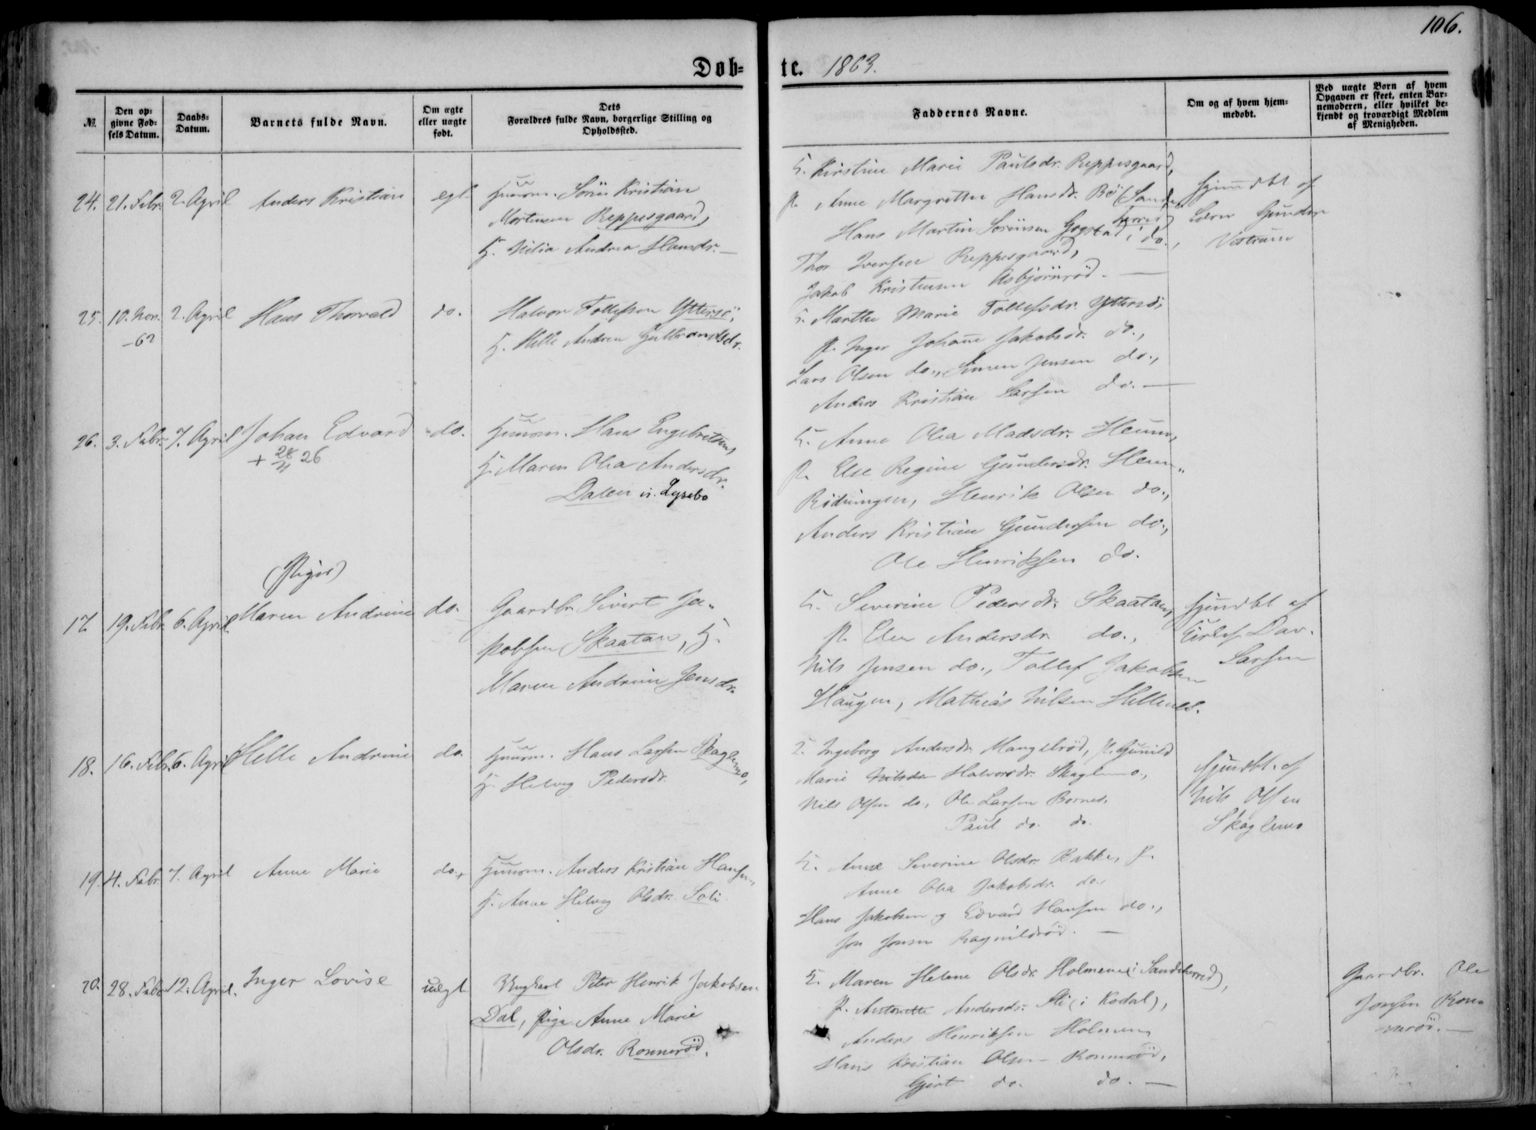 106.
Døb= te. 1863.
№
Den op=
givne Fød=
sels Datum.
Daabs=
Datum.
Barnets fulde Navn.
Om ægte
eller uægte
født.
Dets
Forældres fulde Navn, borgerlige Stilling og
Opholdssted.
Faddernes Navne.
Om og af hvem hjem=
medøbt.
Ved uægte Børn af hvem
Opgaven er skeet, enten Bar=
nemoderen, eller hvilket be=
kjendt og troværdigt Medlem
af Menigheden.
24. 21. Febr. 2. April Anders Kristian egt.
Huusm. Sørn Kristian
Mortensen Reppesgaard,
H. Nilia Andrea Hansdr. —
K. Kirstine Marie Paulsdr. Reppesgaard,
p. Anne Margrethe Hansdr. Bø (Sande
herred)
Hans Martin Sørensen Gogstad i do.,
Thor Iversen Reppesgaard,
Jakob Kristensen Asbjørnrød. —
Hjemdbt af
Gunder
25. 10. Nov. 2. April Hans Thorvald do.
—62
Halvor Tollefsen Yttersø,
H. Helle Andrea Gulbrandsdr.
K. Marthe Marie Tollefsdr. Yttersø,
p. Inger Johanne Jakobsdr. do.,
Lars Olsen do., Simen Jensen do.,
Anders Kristian Larsen do. —
26. 3. Febr. 7. April Johan Edvard do.
+ 28/11 26
Huusm. Hans Engebretsen,
H. Maren Olea Andersdr.
Dalen u. Lysebo
K. Anne Olea Madsdr. Heum,
p. Else Regine Gundersdr. Heum
Ridningen, Henrik Olsen do.,
Anders Kristian Gundersen do.,
Ole Henriksen do.
(Piger)
17. 19. Febr. 6. April Maren Andrine do.
Gaardbr. Sivert Ja=
kobsen Skaatan, H.
Maren Andrine Jensdr.
K. Severine Pedersdr. Skaatan,
p. Elen Andersdr. do.,
Nils Jensen do., Tollef Jakobsen
Haugen, Mathias Nilsen
Hjemdbt af
Dav.
Larsen
18. 16. Feb. 6. April Helle Andrine do.
Huusm. Hans Larsen Skaglemo,
H. Helvig Pedersdr.
K. Ingeborg Andersdr. Mangelrød, p. Gunild
Marie Halvorsdr. Skaglemo,
Nils Olsen do., Ole Larsen Bornes,
Paul do. do.
Hjemdbt. af
Nils Olsen
Skaglemo
19. 4. Febr. 7. April Anne Marie do.
Huusm. Anders Kristian Hansen,
H. Anne Helvig Olsdr. Soli
K. Anne Severine Olsdr. Bakke, p.
Anne Olea Jakobsdr. do.
Hans Jakobsen og Edvard Hansen do.,
Jon Jonsen Ragnildrød. —
20. 28. Febr. 12. April. Inger Lovise uægt
Ungkarl Peter Henrik Jakobsen
Dal, Pige Anne Marie
Olsdr. Rønnerød.
K. Maren Helene Olsdr. Holmene (i Sandeherred),
p. Antonette Andersdr. Sti (i Kodal),
Anders Henriksen Holmen,
Hans Kristian Olsen Rønnerød,
Gjert do. do. —
Gaardbr. Ole
Røn=
nerød. —